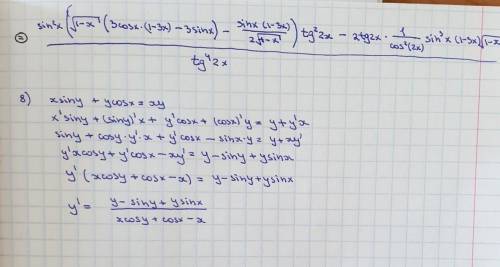 = sin²x (√1-x (3cosx·(1-3x) - 3sinx) - sinx(1-3x) / 2√1-x) tg²2x - 2tg2x · 1 / cos²(2x) sin³x (1-3x)√1-x
tg⁴2x
8) xsiny + ycosx = xy
x'siny + (siny)'x + y'cosx + (cosx)'y = y + y'x
siny + cosy·y'·x + y'cosx - sinx·y = y + xy'
y'xcosy + y'cosx - xy' = y - siny + ysinx
y' (xcosy + cosx - x) = y - siny + ysinx
y' = y - siny + ysinx / xcosy + cosx - x